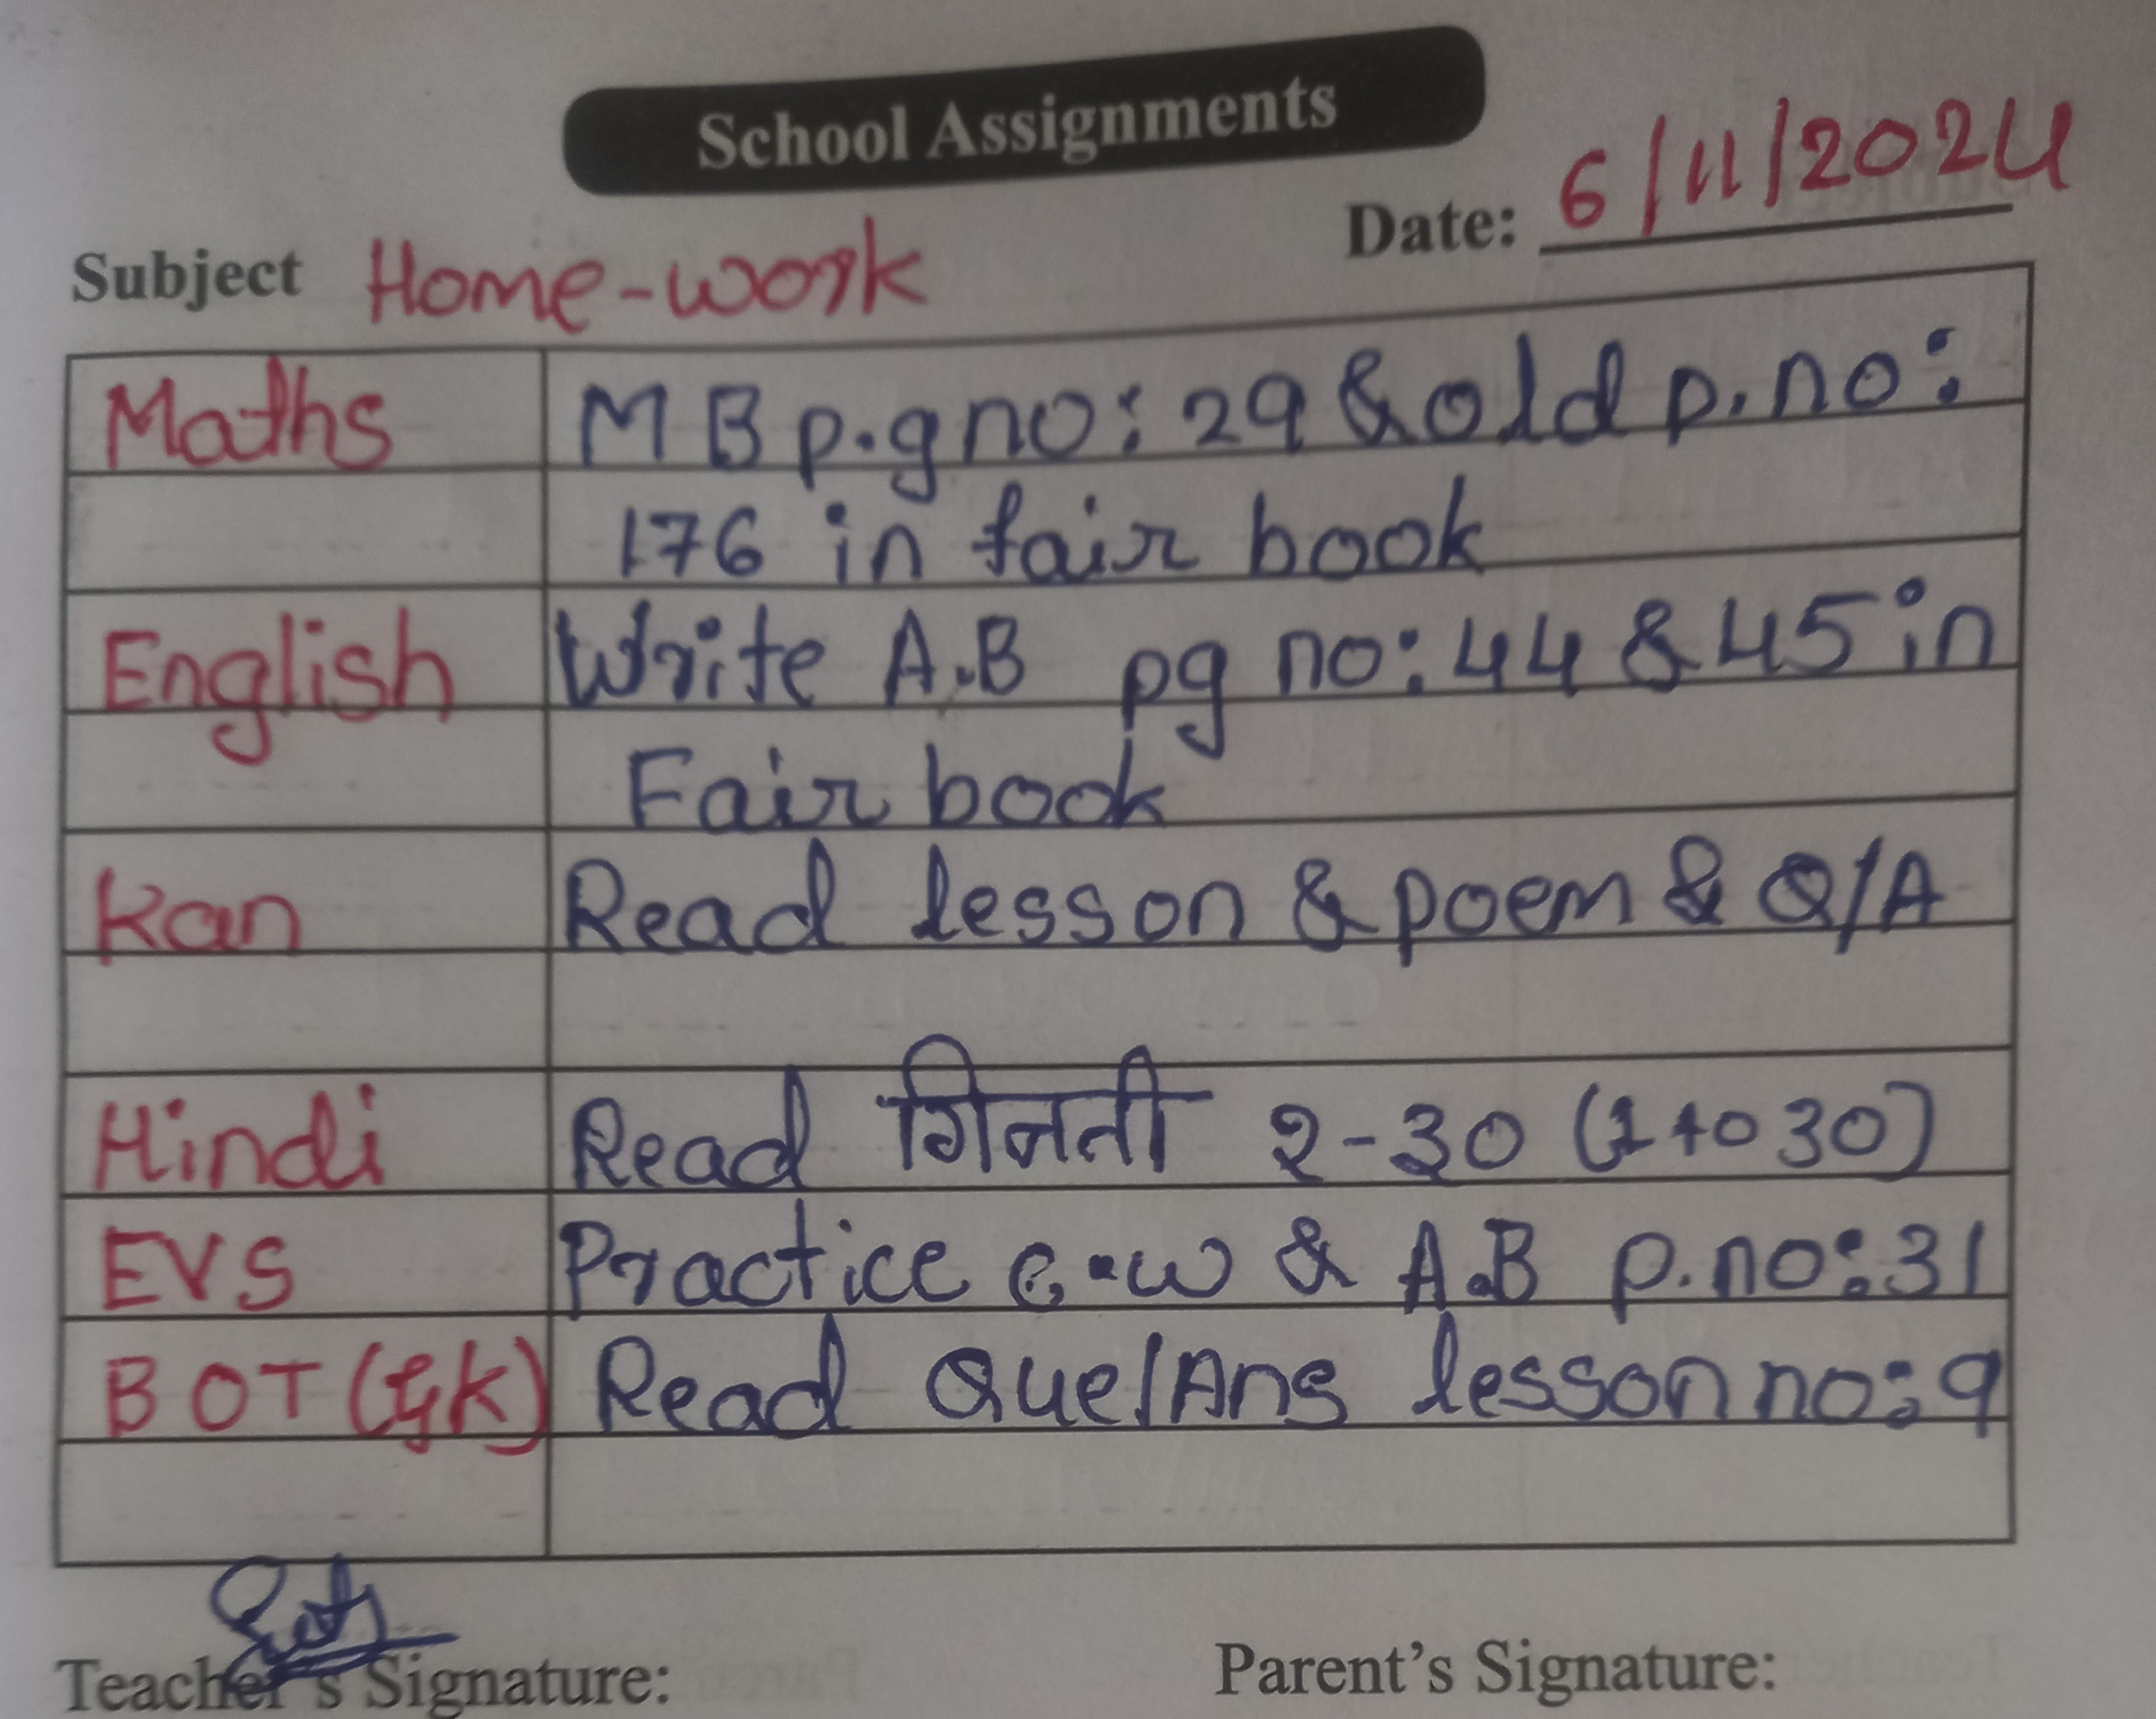 School Assignments
Date: 6/11/2024
Subject Home-work
Maths MB p.g no: 29 & old p.no:
176 in fair book
English Write A.B pg no: 44 & 45 in
Fair book
Kan Read lesson & poem & Q/A
Hindi Read गिनती १-३0 (1 to 30)
EVS Practice c.w & A.B p.no: 31
BOT (GK) Read Que/Ans lesson no: 9
Teacher's Signature: Parent's Signature: